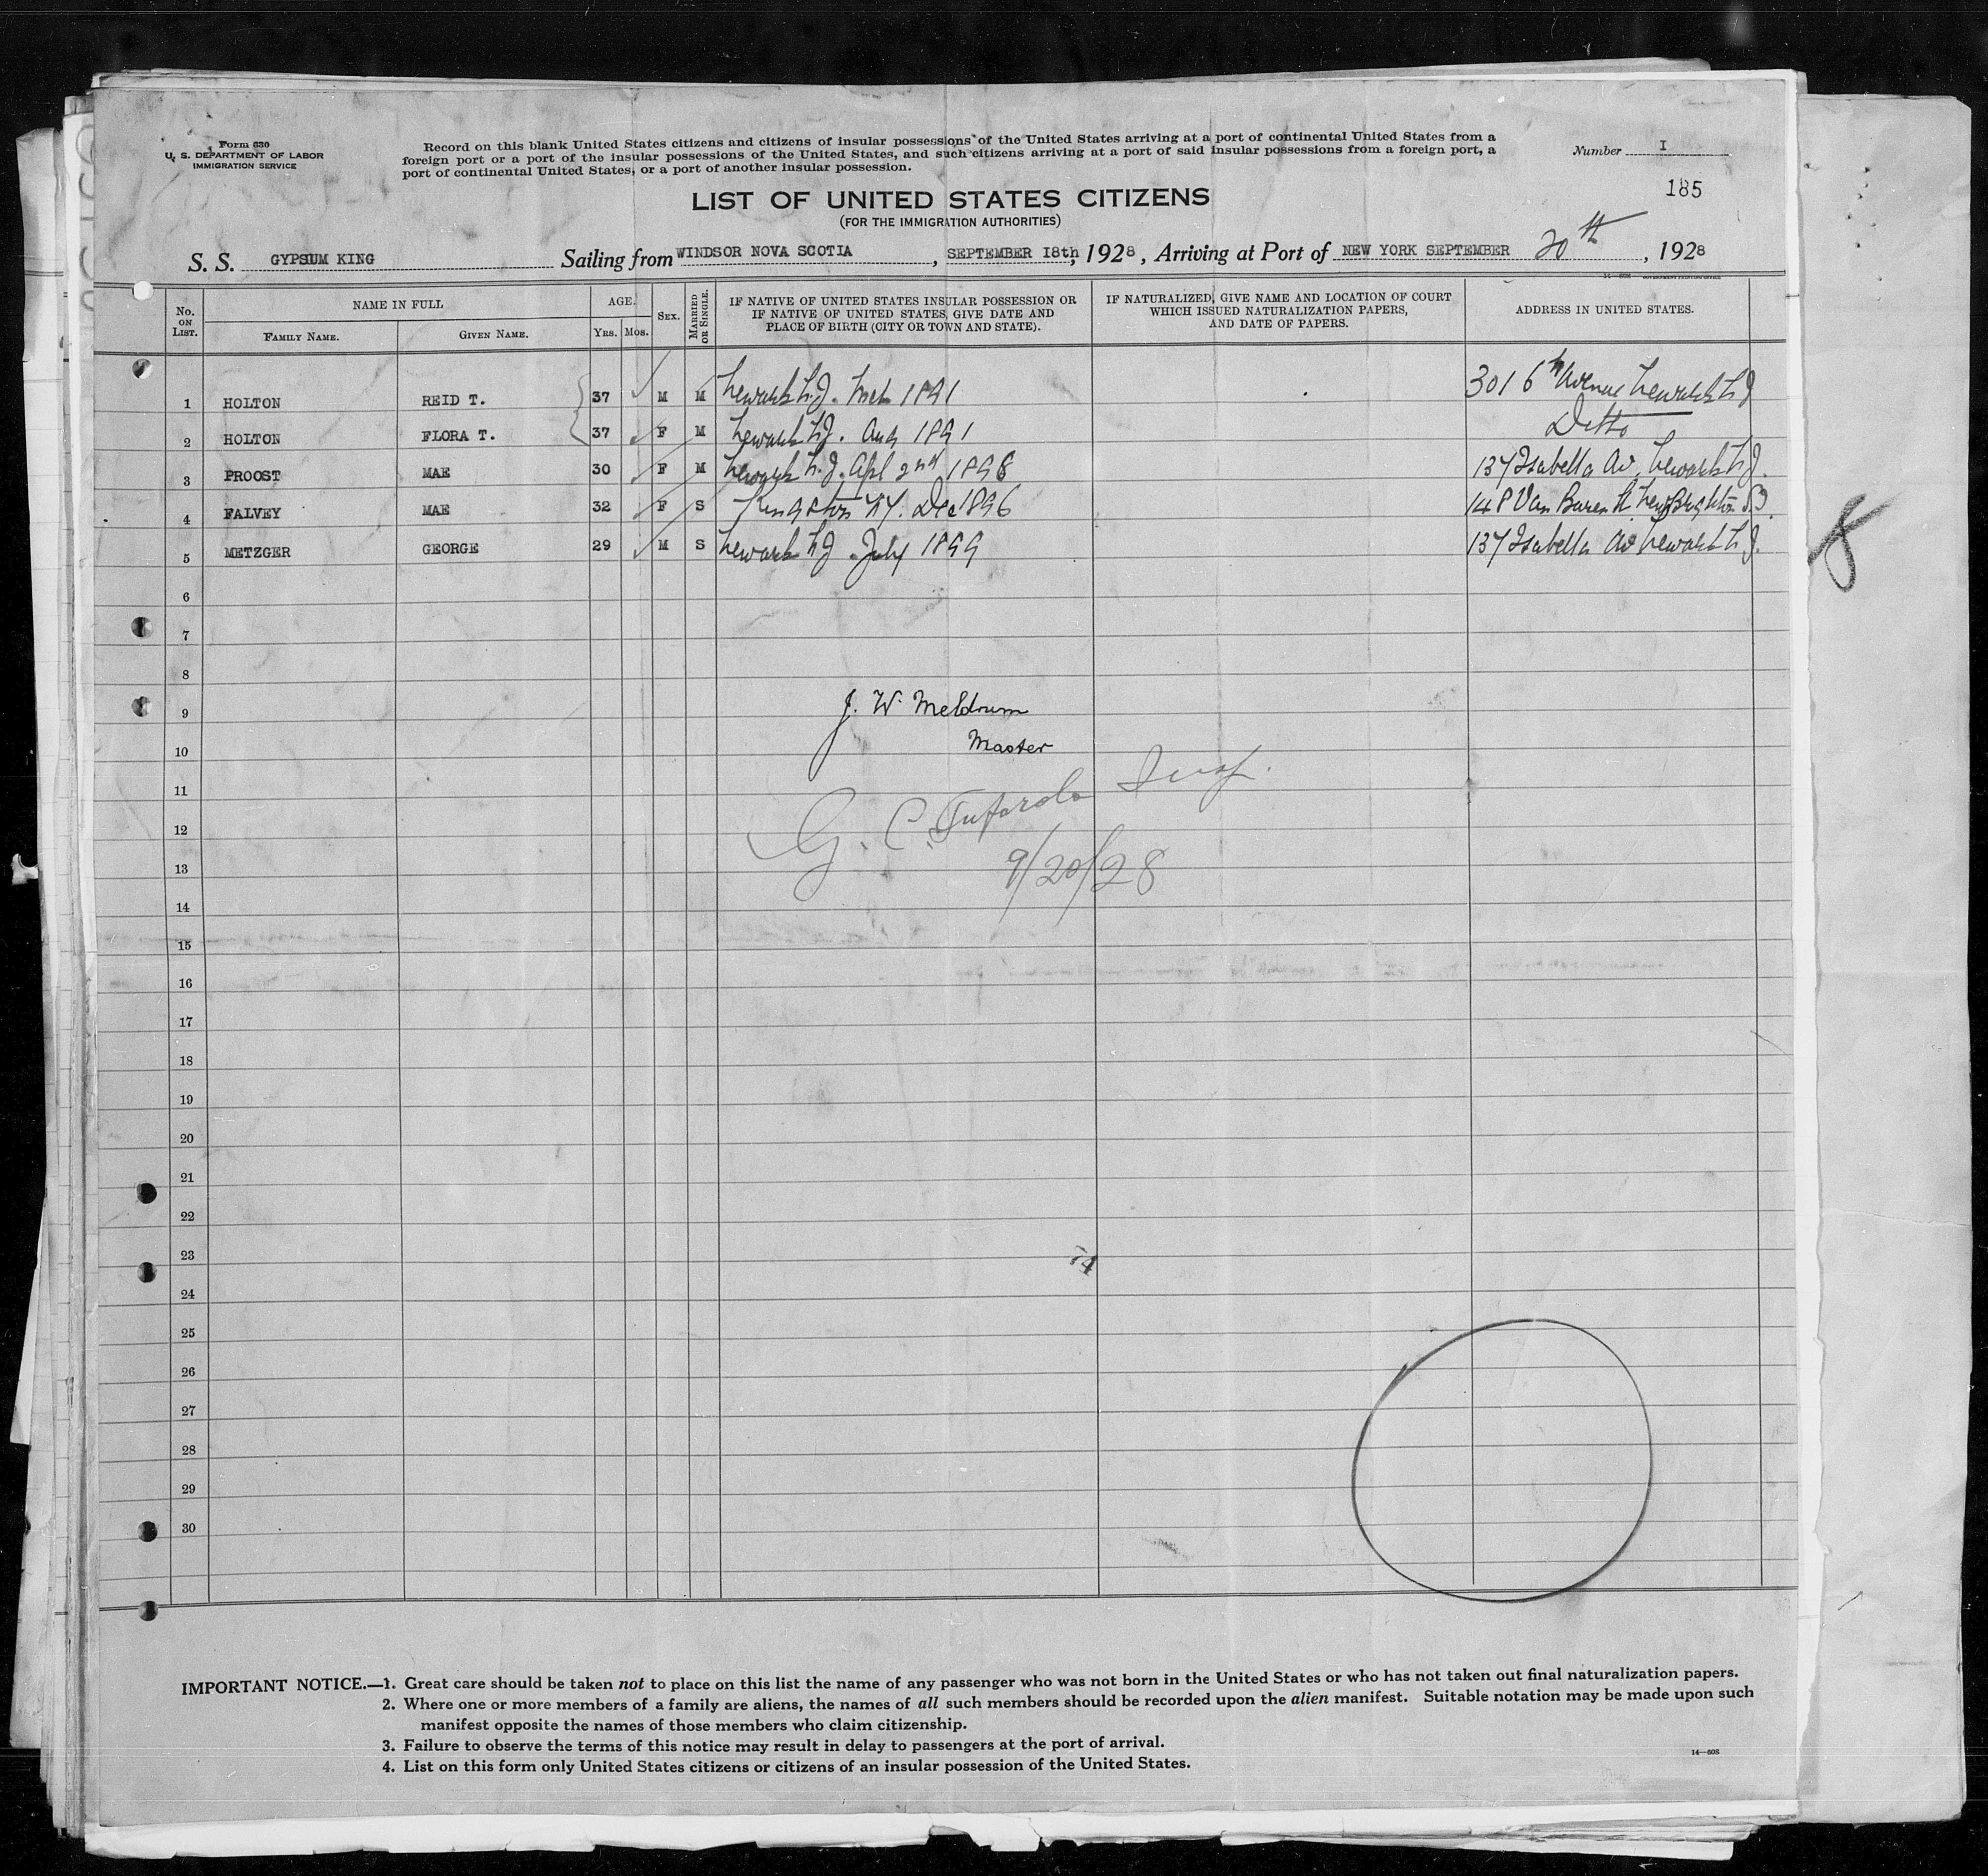 Form 630
U. S. DEPARTMENT OF LABOR
IMMIGRATION SERVICE
Record on this blank United States citizens and citizens of insular possessions of the United States arriving at a port of continental United States from a
foreign port or a port of the insular possessions of the United States, and such citizens arriving at a port of said insular possessions from a foreign port, a
port of continental United States, or a port of another insular possession.
Number I
185
LIST OF UNITED STATES CITIZENS
(FOR THE IMMIGRATION AUTHORITIES)
S. S. GYPSUM KING Sailing from WINDSOR NOVA SCOTIA, SEPTEMBER 18th, 1928, Arriving at Port of NEW YORK SEPTEMBER 20th, 1928
No. ON LIST. NAME IN FULL FAMILY NAME. GIVEN NAME. AGE. YRS. MOS. SEX. MARRIED OR SINGLE.
IF NATIVE OF UNITED STATES INSULAR POSSESSION OR
IF NATIVE OF UNITED STATES, GIVE DATE AND
PLACE OF BIRTH (CITY OR TOWN AND STATE).
IF NATURALIZED, GIVE NAME AND LOCATION OF COURT
WHICH ISSUED NATURALIZATION PAPERS,
AND DATE OF PAPERS.
ADDRESS IN UNITED STATES.
1 HOLTON REID T. 37 M M Newark N.J. Mch 1891 301 6th Avenue Newark N J
2 HOLTON FLORA T. 37 F M Newark N.J. Aug 1891 Ditto
3 PROOST MAE 30 F M Newark N.J. Apl 2nd 1898 137 Isabella Av, Newark N J.
4 FALVEY MAE 32 F S Kingston NY. Dec 1896 148 Van Buren St New Brighton S.I.
5 METZGER GEORGE 29 M S Newark N J July 1899 137 Isabella Av Newark N J.
8
6
7
8
9
J. W. Meldrum
10
Master
11
Insp.
12
G. C.
13
9/20/28
14
15
16
17
18
19
20
21
22
23
74
24
25
26
27
28
29
30
IMPORTANT NOTICE.—1. Great care should be taken not to place on this list the name of any passenger who was not born in the United States or who has not taken out final naturalization papers.
2. Where one or more members of a family are aliens, the names of all such members should be recorded upon the alien manifest. Suitable notation may be made upon such
manifest opposite the names of those members who claim citizenship.
3. Failure to observe the terms of this notice may result in delay to passengers at the port of arrival.
4. List on this form only United States citizens or citizens of an insular possession of the United States.
14—608